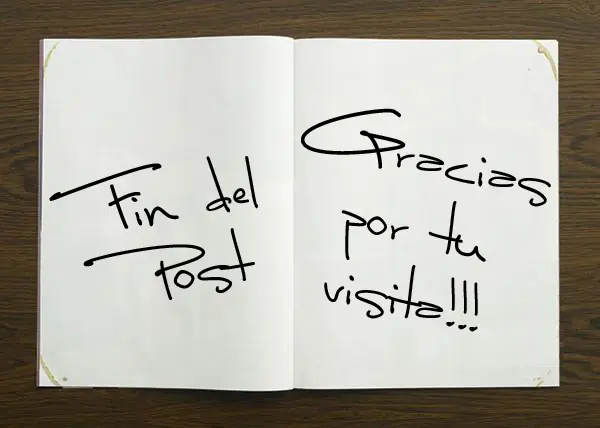 Fin del
Post
Gracias
por tu
visita!!!